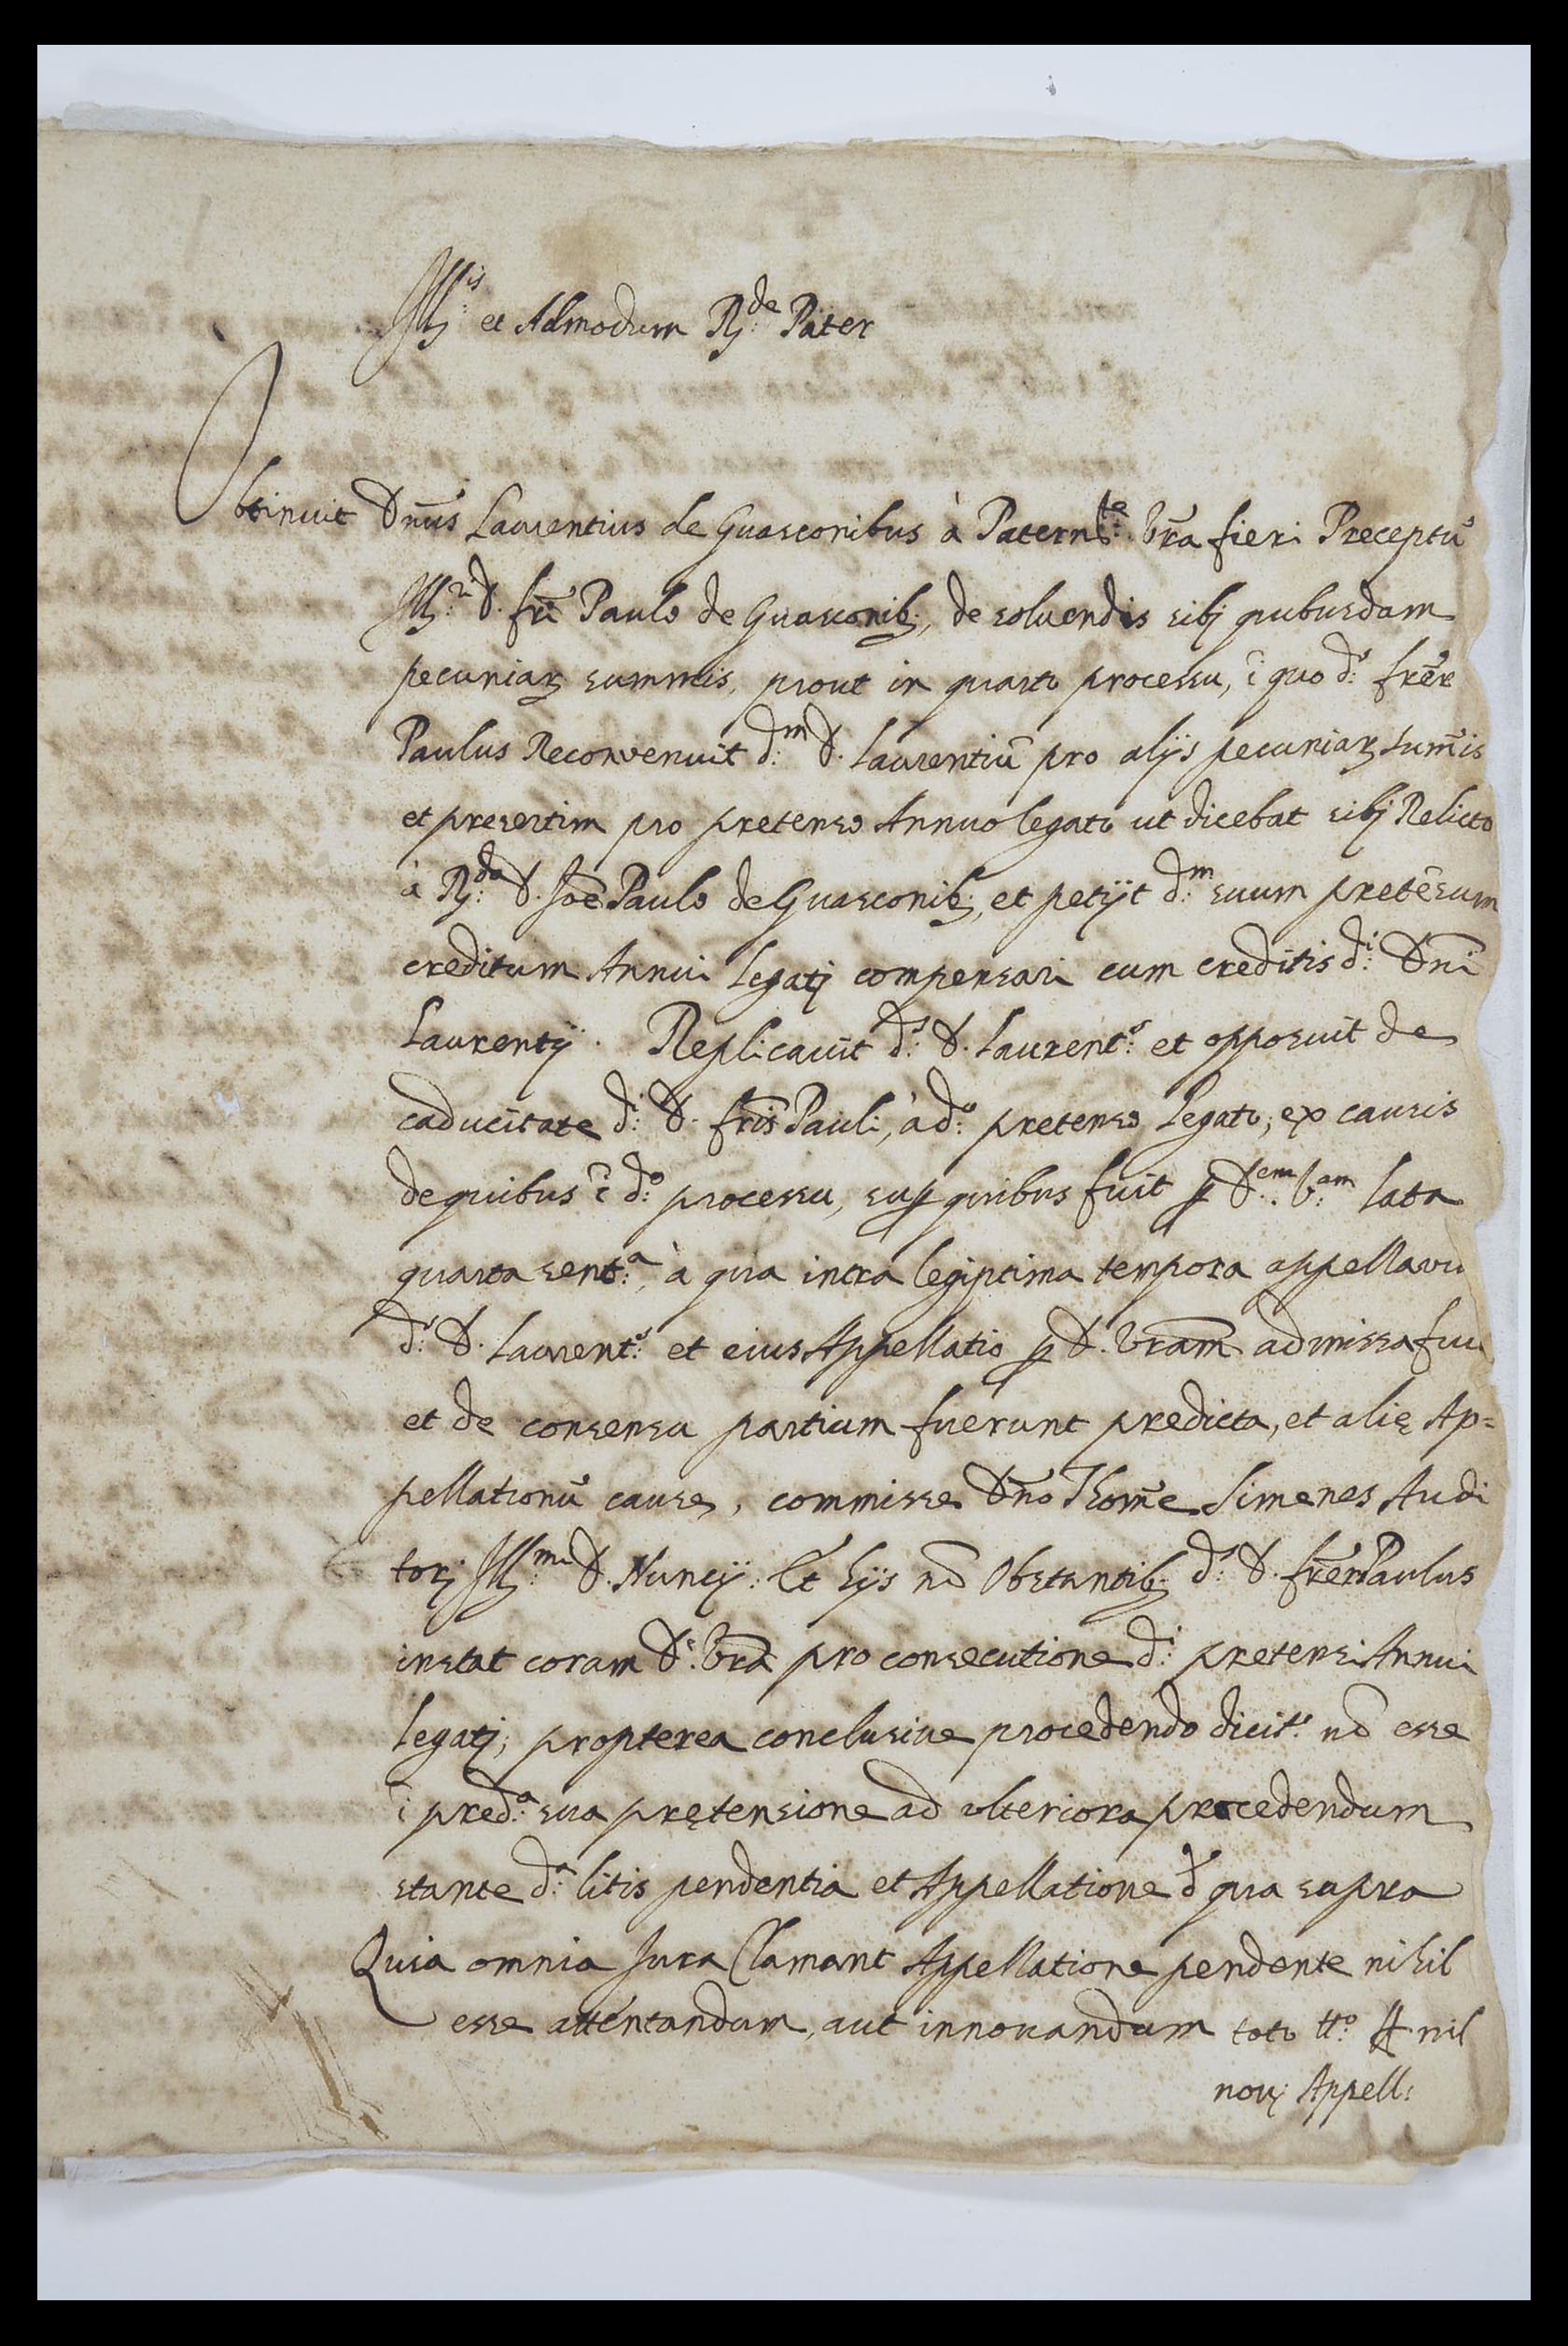 Ill:is et Admodum R:de Pater
Obtinuit Dnũs Laurentius de Guasconibus à Patern:te Vrã fieri Preceptũ
Ill:ri D. frĩ Paulo de Guasconib; de solvendis sibj quibusdam
pecuniar summis, prout in quarto processu, ĩ quo d:s frẽr
Paulus Reconvenuit d:m D. Laurentiũ pro alijs pecuniar sum̃is
et presertim pro pretenso Annuo legato ut dicebat sibj Relicto
à R:do D. Joẽ Paulo de Guasconib; et petijt d:m suum pretẽsum
creditum Annui Legatj compensari cum creditis d:i Dnĩ
Laurentij. Replicavit d:s D. Laurent:s et opposuit de
caducitate d:i D. frĩs Pauli, à d:o pretenso Legato, ex causis
de quibus ĩ d:o processu, sup quibus fuit p D:em V:am lata
quarta sent:a, à qua intra legiptima tempora appellavit
d:s D. Laurent:s et eius Appellatio p D. Vram̃ admissa fuit
et de consensu partium fuerunt predicta, et alię Ap=
pellationũ cause, commisse Dnõ Thom̃e Simenes Audi
torj Ill:mi D. Nuncij: Et hijs nõ Obstantib; d:s D. frẽr Paulus
instat coram D:e Vrã pro consecutione d:i pretensi Annui
Legatj; propterea conclusive procedendo dicit:r nõ esse
ĩ pred:a sua prętensione ad ulteriora procedendum
stante d:a litis pendentia et Appellatione d qua supra
Quia omnia Jura Clamant Appellatione pendente nihil
esse attentandum, aut innovandum toto tt:o ff nil
novj Appell: